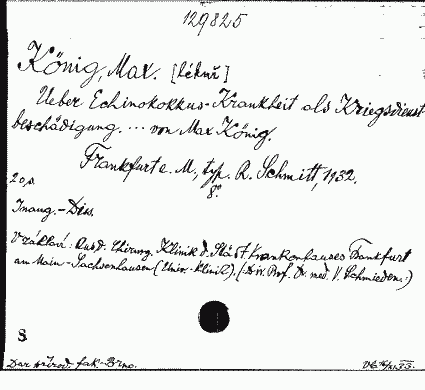 129825
König, Max. [lékař]
Ueber Echinokokkus-Krankheit als Kriegsdienst-
beschädigung. ... von Max König.
Frankfurt a. M., typ. R. Schmitt, 1932.
20 s. 8°.
Inaug.-Diss.
V záhlaví: Aus d. Chirurg. Klinik d. Städt. Krankenhauses Frankfurt
am Main-Sachsenhausen (Univ.-Klinik). (Dir. Prof. Dr. med. V. Schmieden.)
8
Dar přírod. fak. Brno.